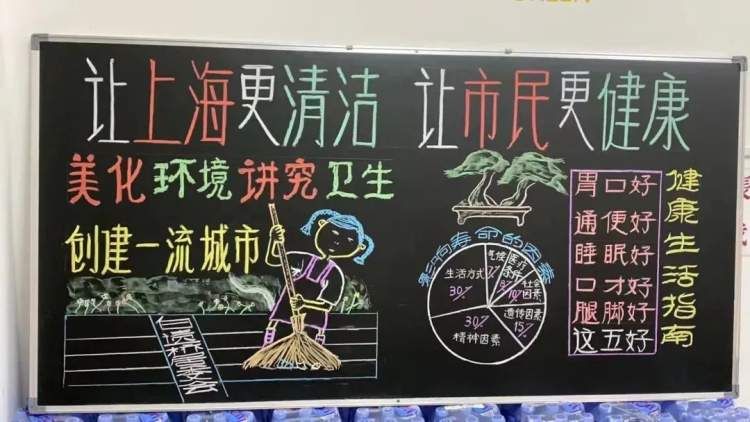 让上海更清洁 让市民更健康
美化环境 讲究卫生
创建一流城市
白遗桥居委会
影响寿命的因素
气候
7%
医疗条件
8%
社会因素
10%
遗传因素
15%
精神因素
30%
生活方式
30%
健康生活指南
胃口好
通便好
睡眠好
口才好
腿脚好
这五好